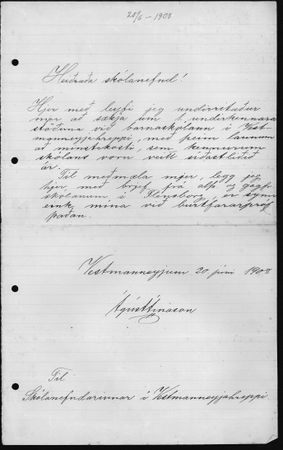 28/6 - 1908
Heiðraða skólanefnd!
Hér með leyfi jeg undirritaður
mjer að sækja um 1. undirkennara
stöðuna við barnaskólann í Vest-
manneyjahreppi með þeim launum
að minstakosti, sem kennurum
skólans voru veitt síðastliðið
ár.
Til meðmæla mjer, legg jeg
hjer með brjef frá alþ. og gagnf.
skólanum í Flensborg, er sýnir
eink. mína við burtfararpróf
þaðan.
Vestmanneyjum 20. júní 1908
Ágúst Árnason
Til
Skólanefndarinnar í Vestmanneyjahreppi